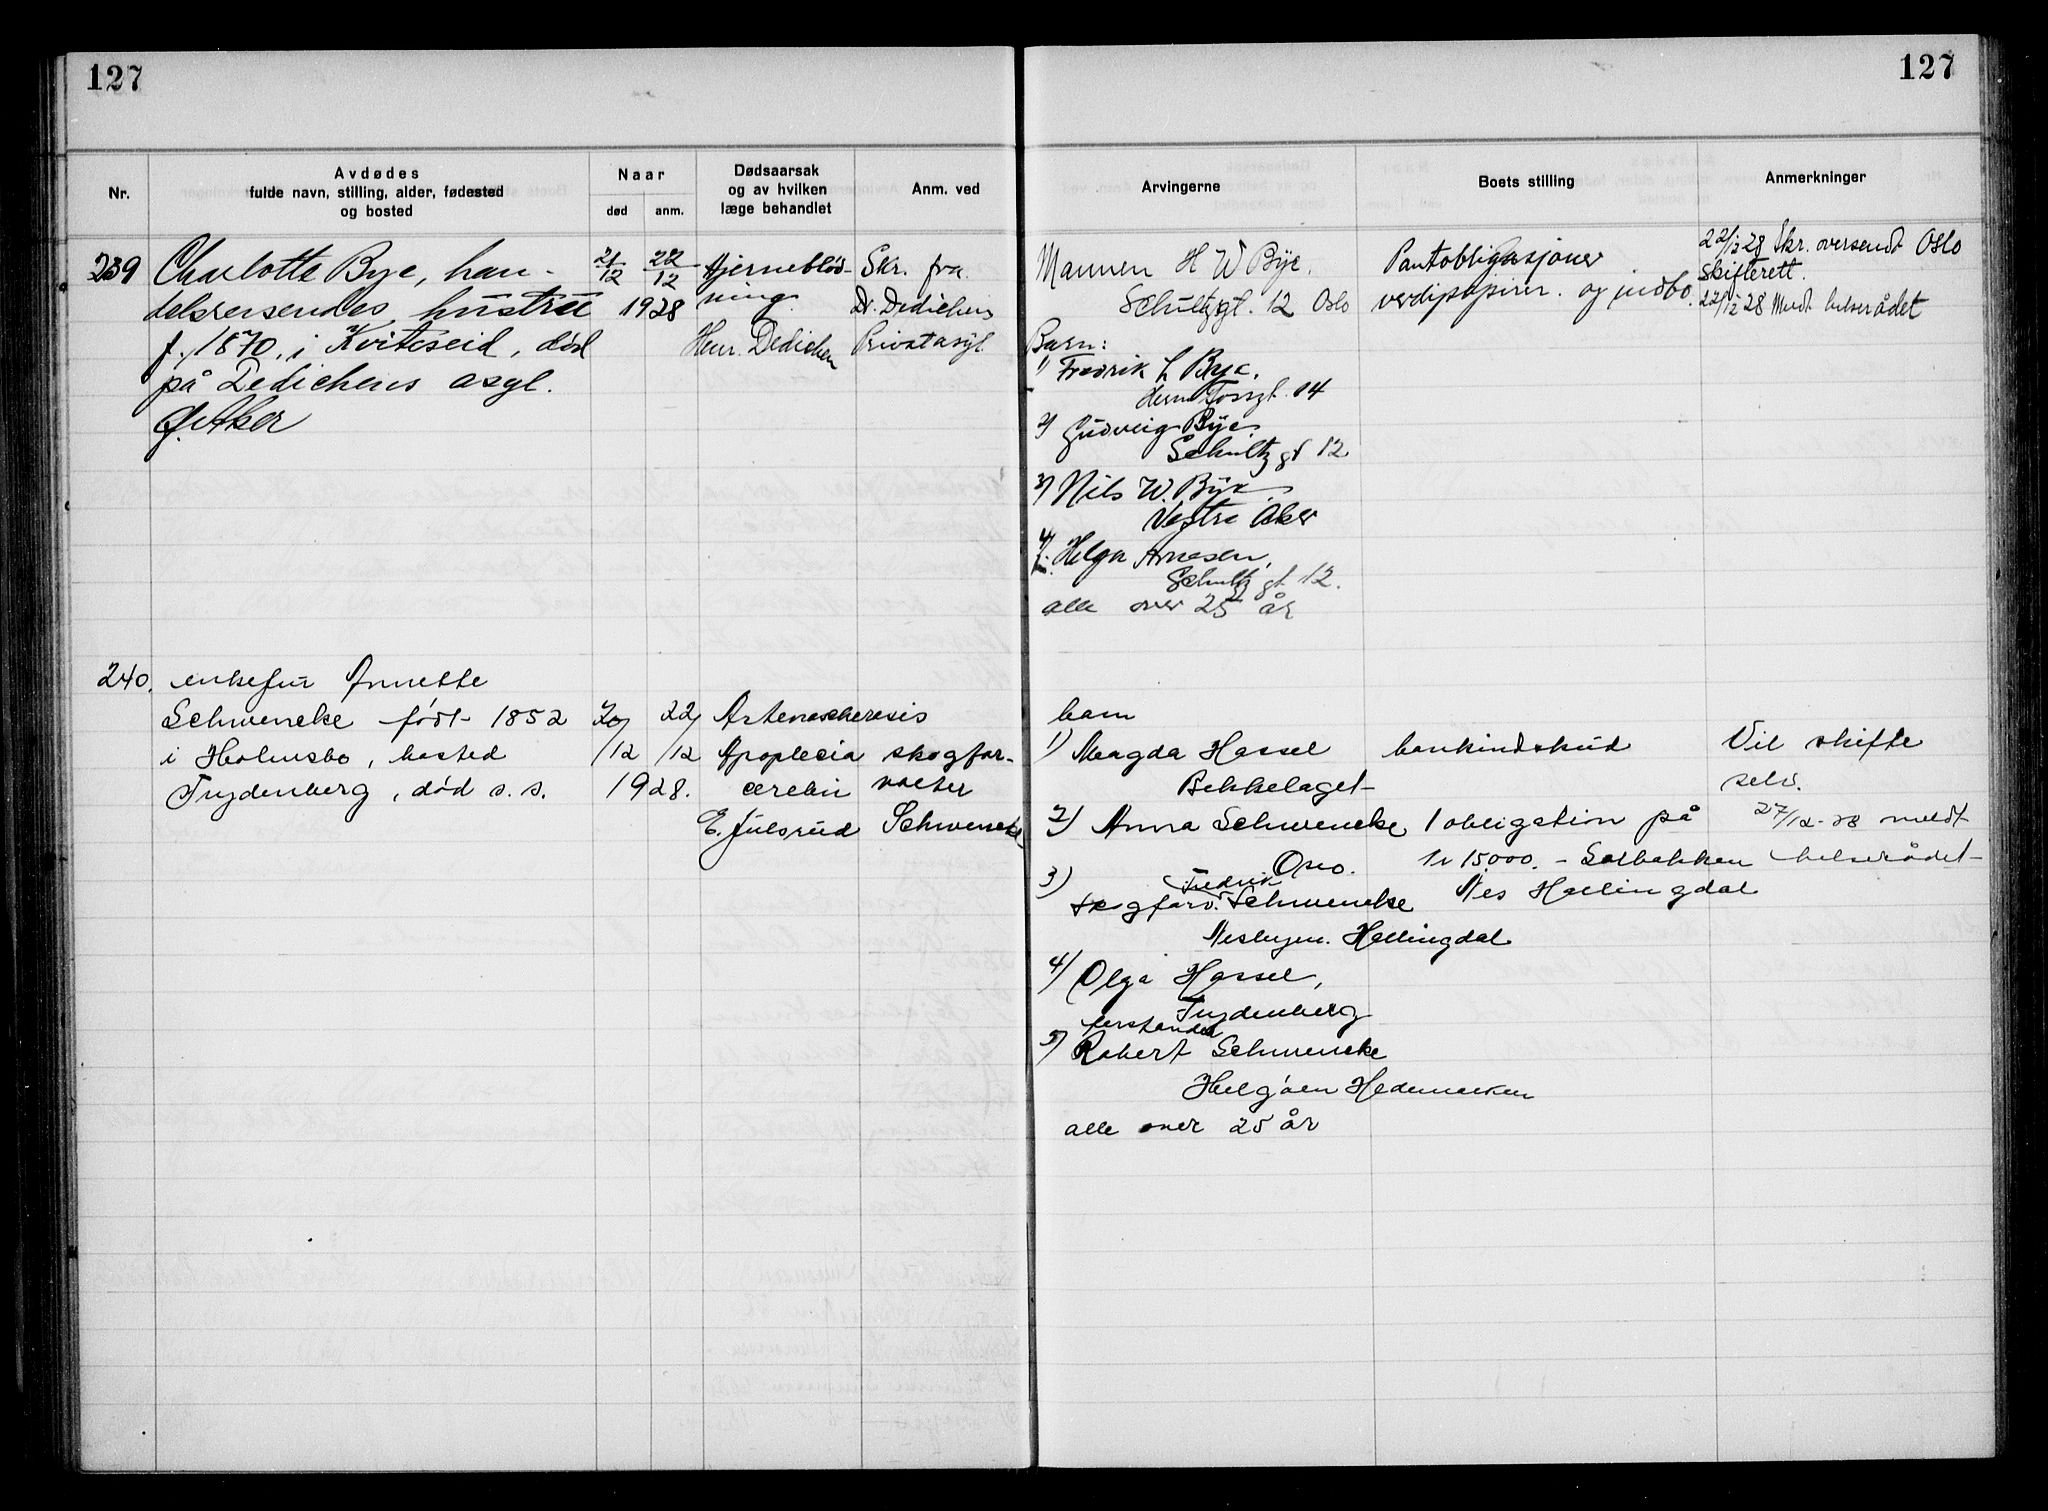 127
127
Nr.
Avdødes
fulde navn, stilling, alder, fødested
og bosted
Naar
død
anm.
Dødsaarsak
og av hvilken
læge behandlet
Anm. ved
Arvingerne
Boets stilling
Anmerkninger
239
Charlotte Bye, han-
delsreisendes hustru
f. 1870, i Kviteseid, død
på Dedichens asyl.
Ø. Aker
21/12
22/12
1928
Hjerneblød-
ning.
Henr. Dedichen
Skr. fra
Dr. Dedichens
Privatasyl.
Mannen H W Bye.
Schultzgt. 12 Oslo
Barn:
1) Fredrik L Bye,
Herm Fossgt. 14
2) Gudveig Bye
Schultz gt 12
3) Nils W. Bye
Vestre Aker
4) Helga Arnesen,
Schultz gt 12.
alle over 25 år
Pantobligasjoner
verdipapirer. og indbo.
22/12 28 Skr. oversendt Oslo
skifterett.
22/12 28 Meldt helserådet
240.
enkefru Annette
Schwencke født 1852
i Holmsbo, bosted
Frydenberg, død s. s.
20/12
22/12
1928.
Apoplexia
cerebri
E. Julsrud
skogfor-
valter
Schwencke
barn
1) Magda Hassel
Bekkelaget
2) Anna Schwencke
Oslo.
3)
Fredrik
Skogforv. Schwencke
Nesbyen. Hallingdal
4) Olga Hassel,
Frydenberg
5) Robert Schwencke
Helgøen Hedemarken
alle over 25 år
bankindskud
1 obligation på
kr 15000. – Solbakken
Nes Hallingdal
Vil skifte
selv.
27/12-28 meldt
helserådet